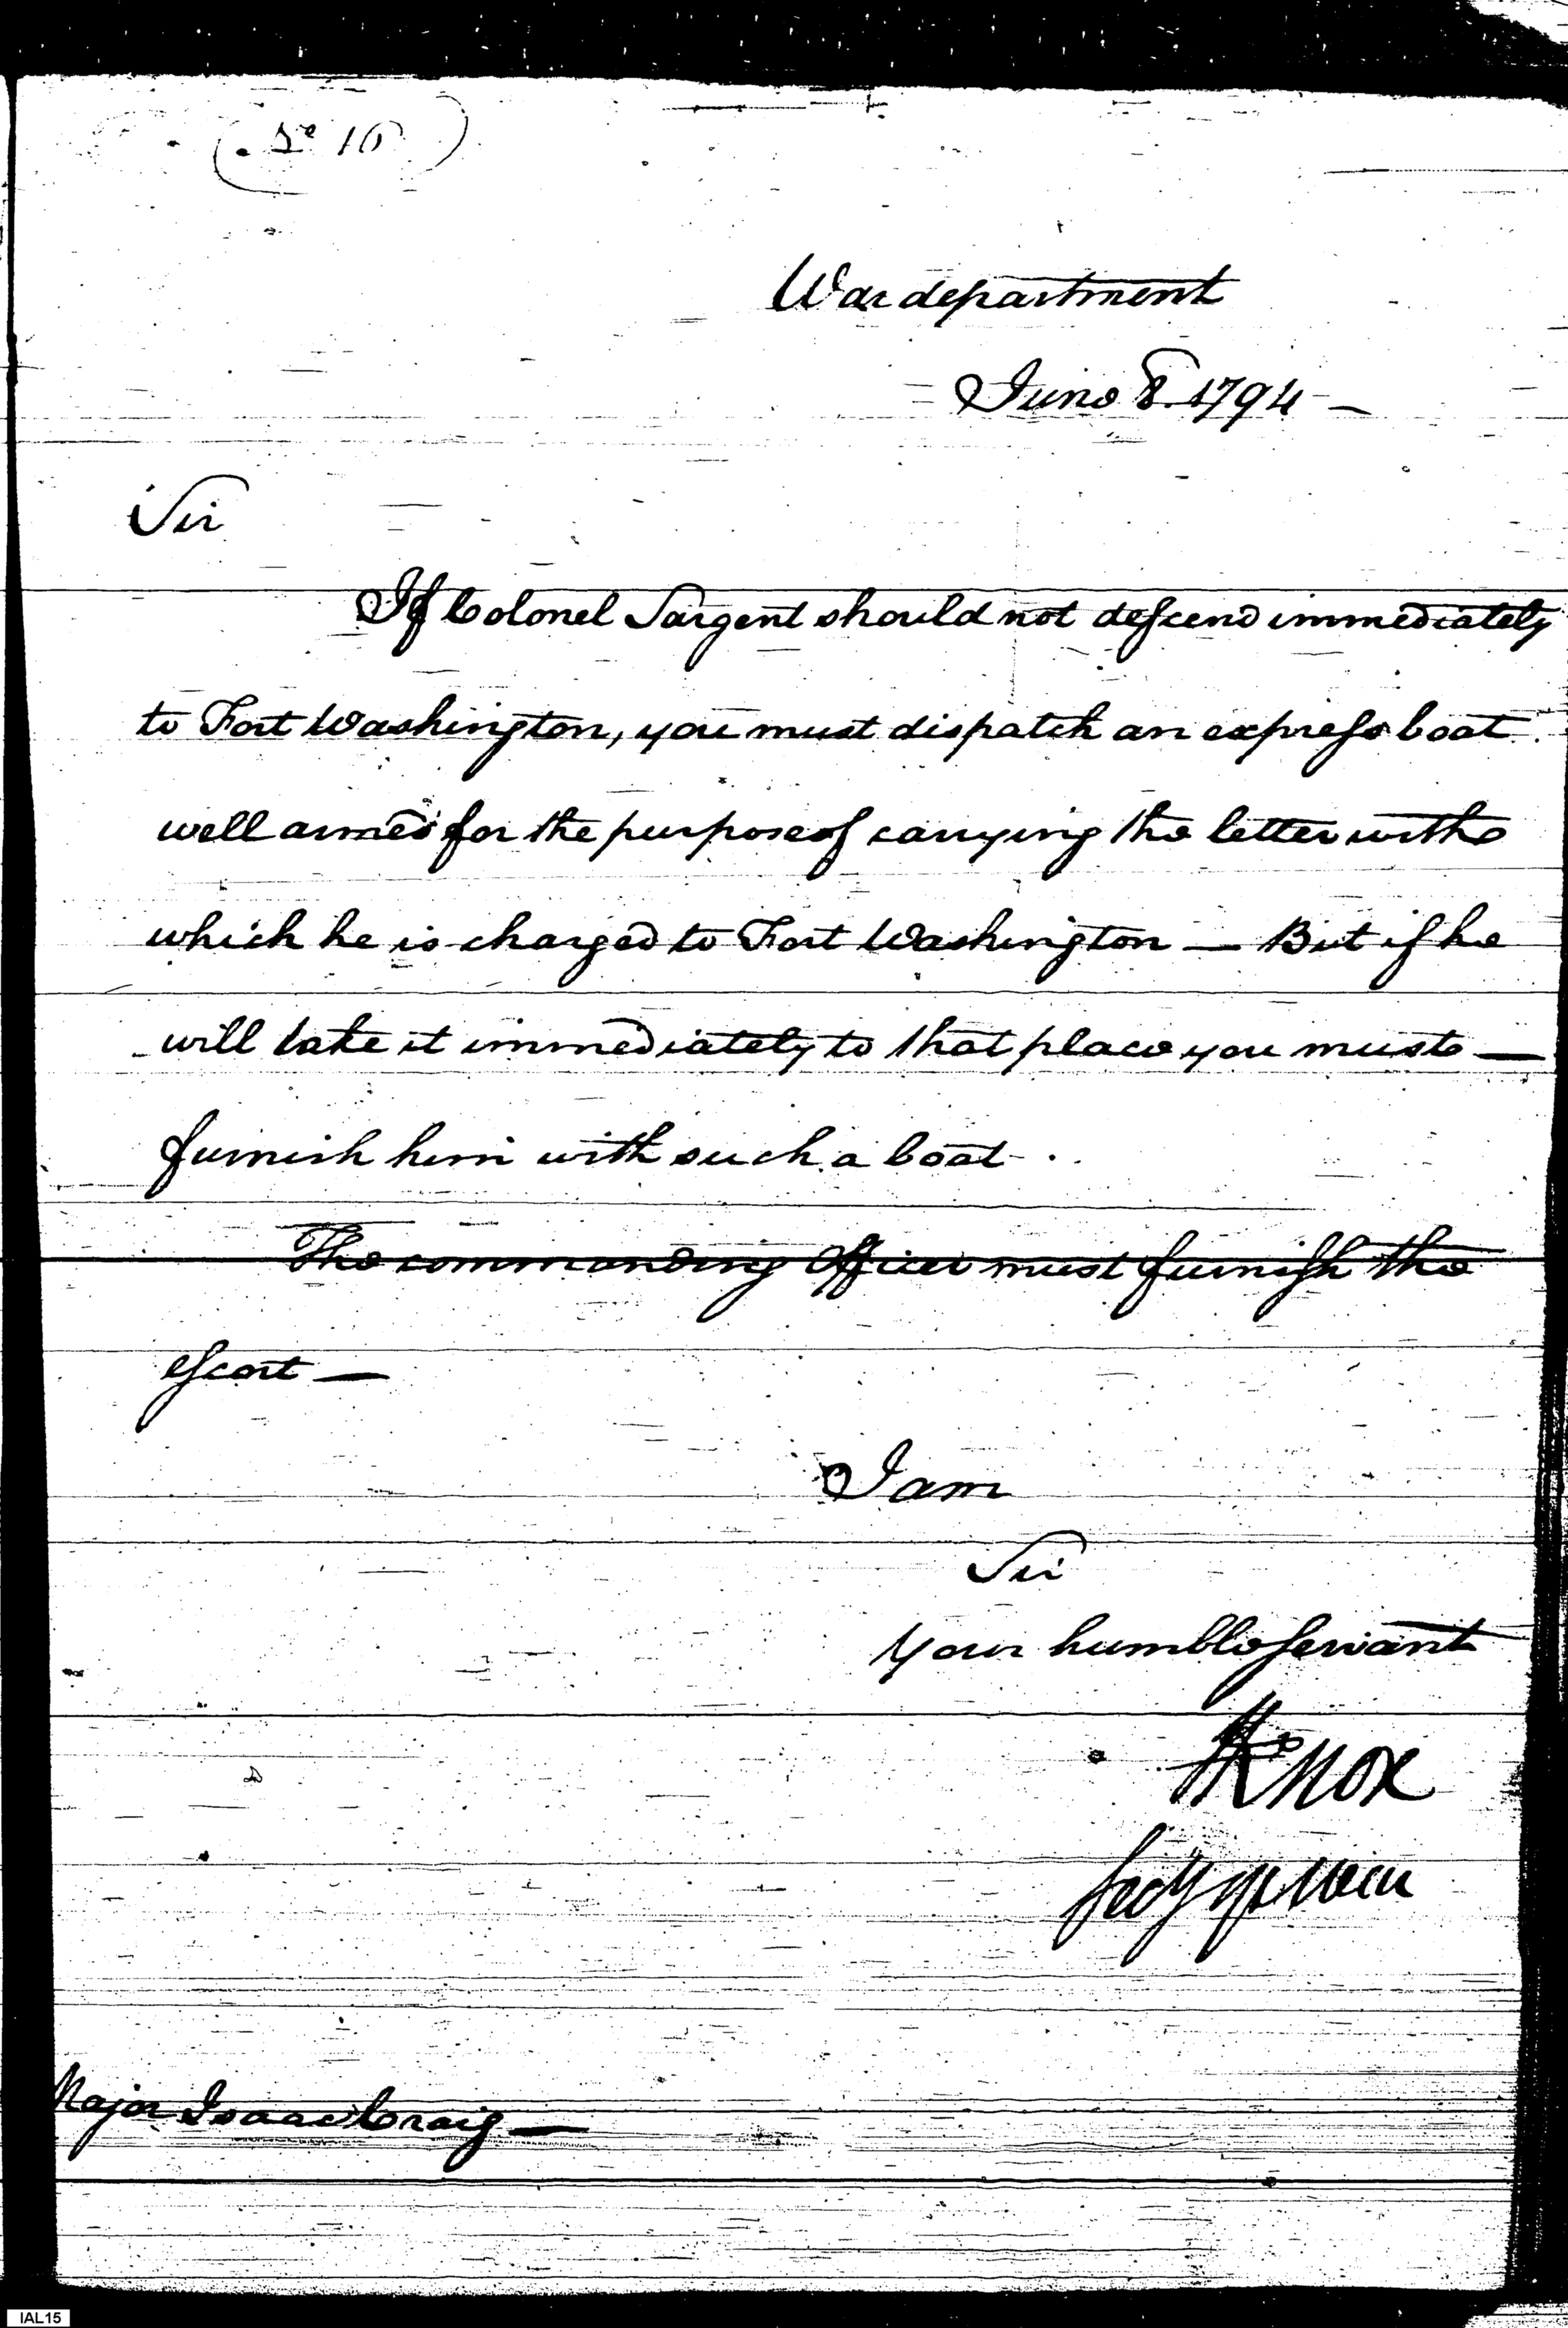 No 10
War department
June 8. 1794 —
Sir
If Colonel Sargent should not descend immediately
to Fort Washington, you must dispatch an express boat
well armed for the purpose of carrying the letter with
which he is charged to Fort Washington — But if he
will take it immediately to that place you must —
furnish him with such a boat.
The commanding officer must furnish the
escort —
I am
Sir
Your humble servant
H Knox
Secy of War
Major Isaac Craig —
IAL15